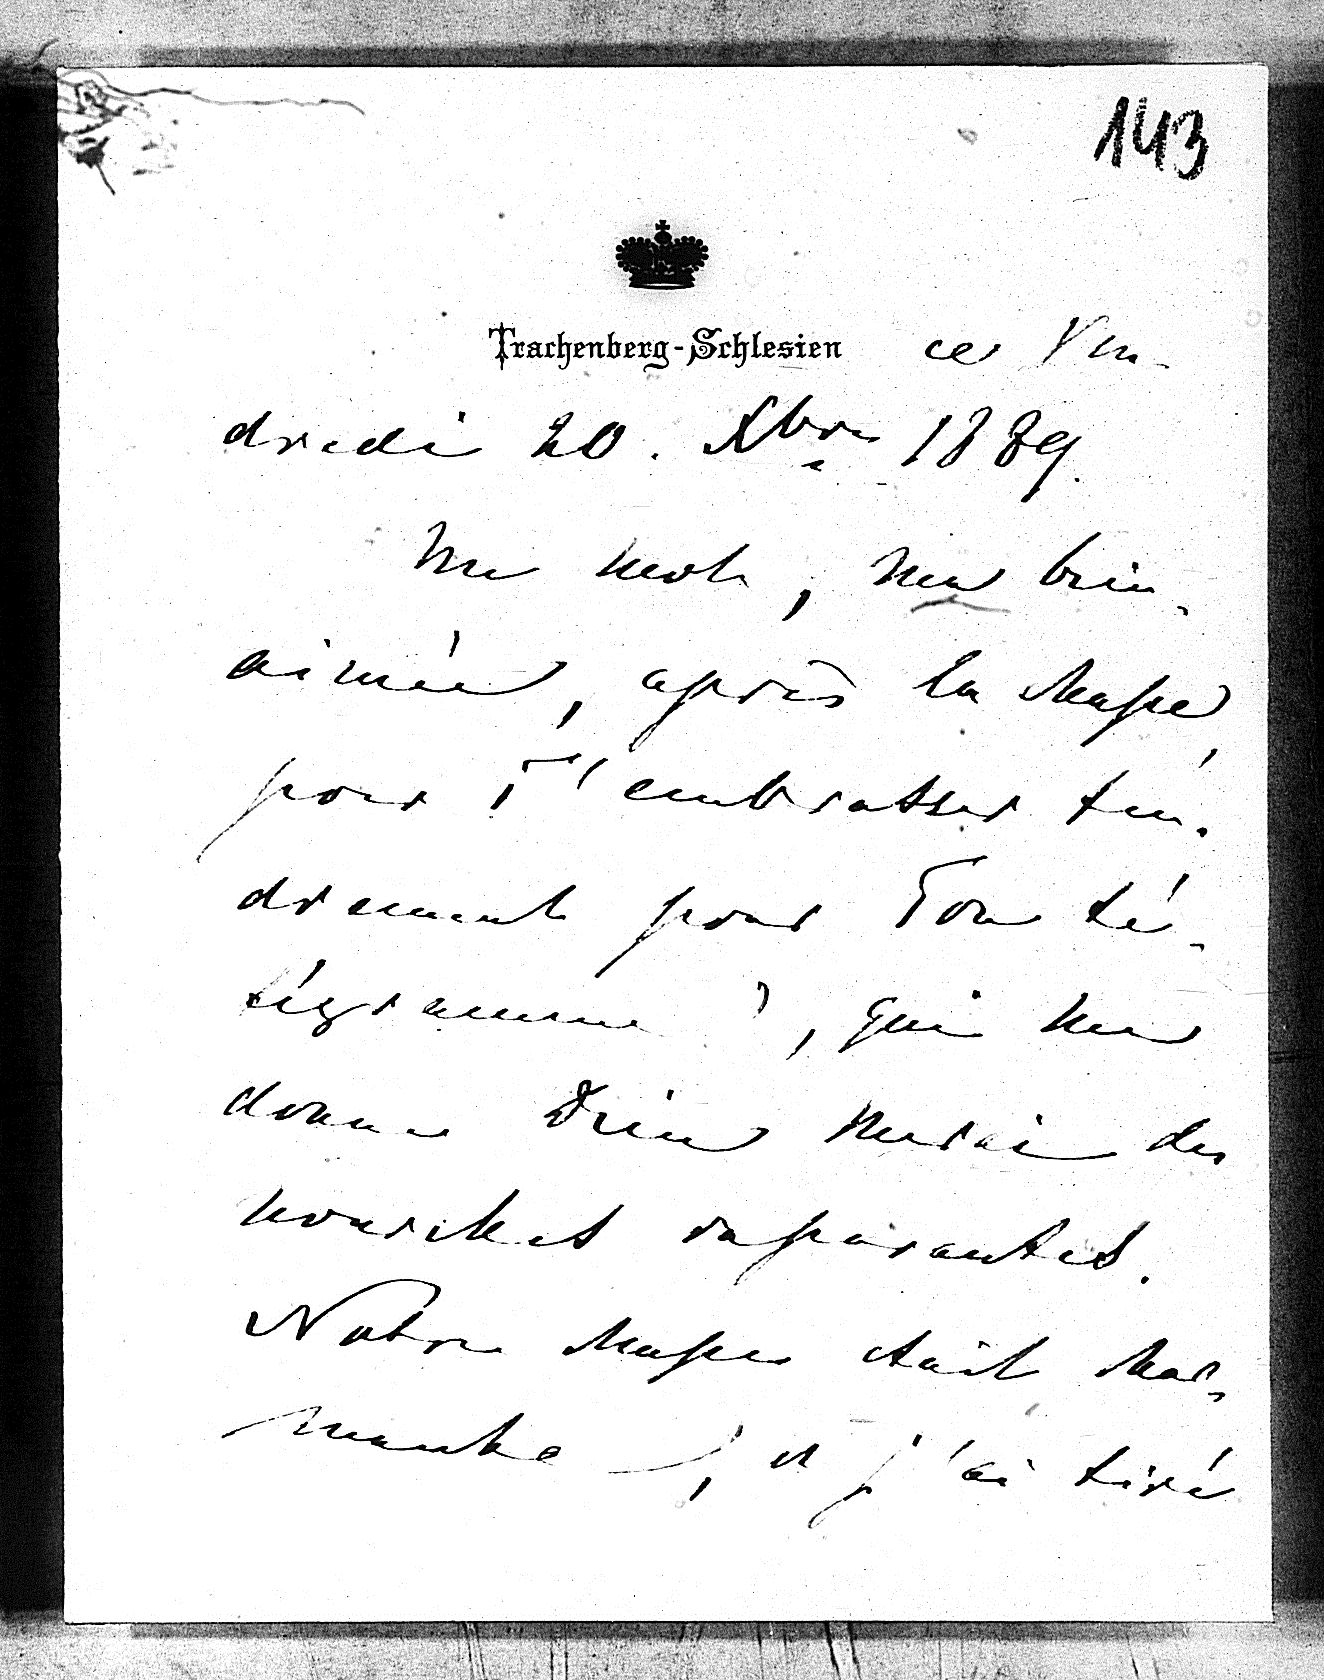 143
Trachenberg-Schlesien ce Ven-
dredi 20. Xbre 1889.
Un mot, ma bien-
aimée, après la chasse,
pour T'embrasser ten-
drement pour Ton té-
légramme, qui me
donne Dieu merci des
nouvelles rassurantes.
Notre chasse était char-
mante, et j'ai tiré